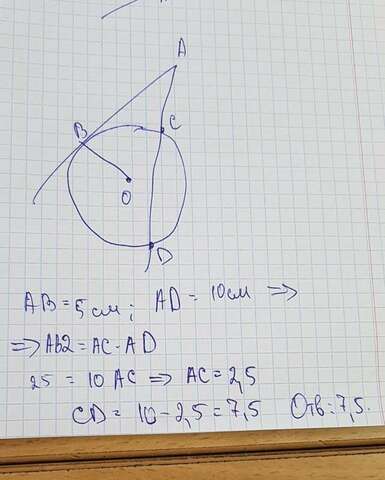 A
B
C
O
D
AB = 5 см; AD = 10 см =>
=> AB2 = AC · AD
25 = 10 AC => AC = 2,5
CD = 10 - 2,5 = 7,5 Отв: 7,5.